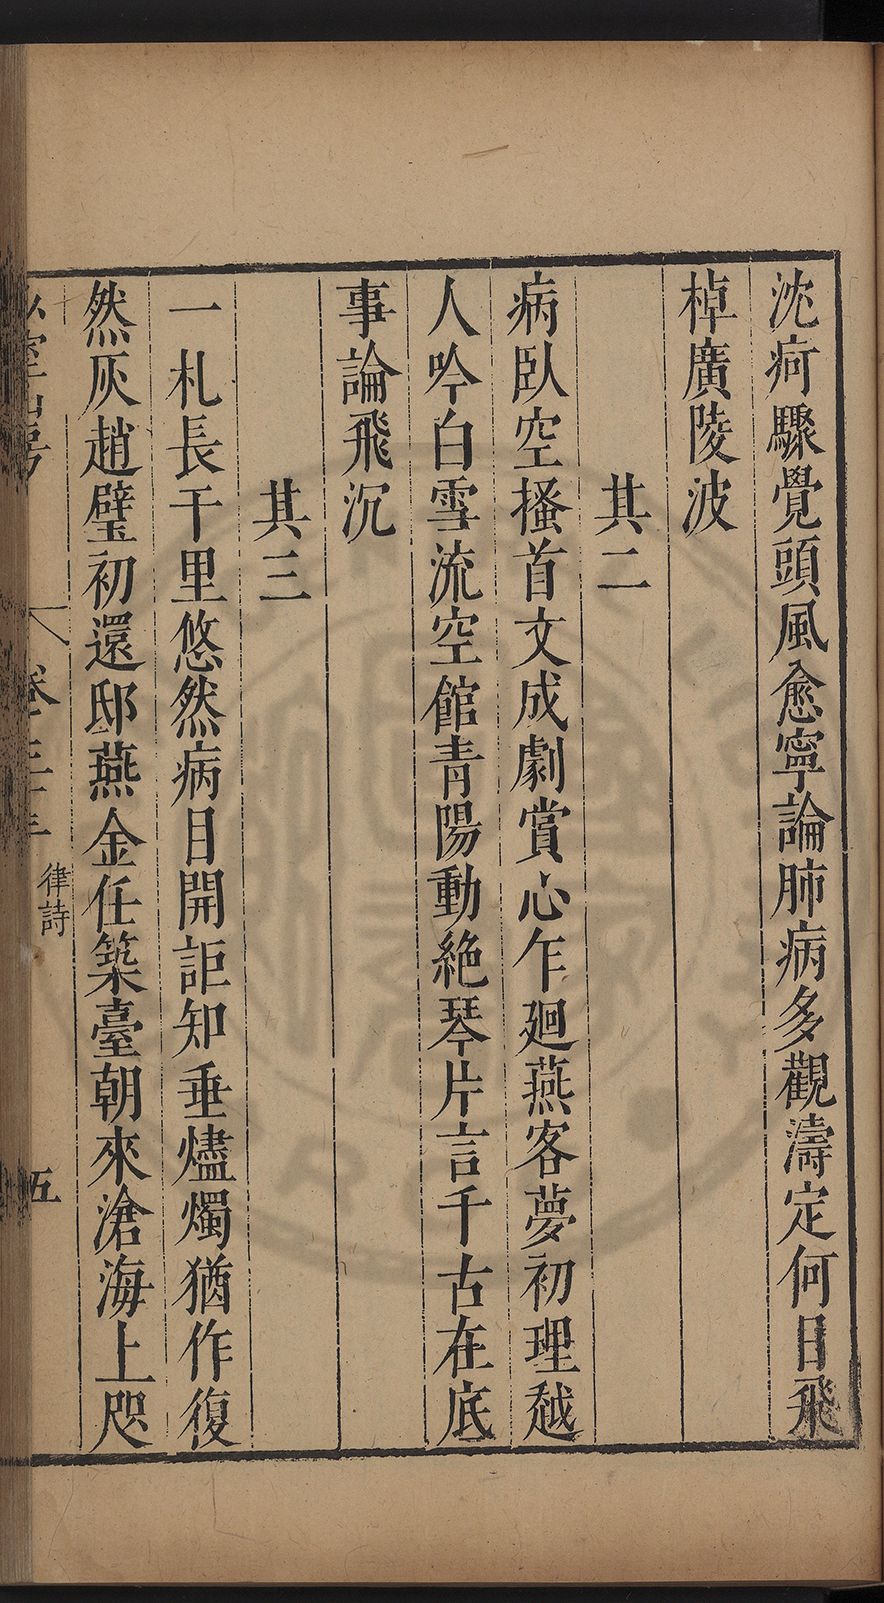 沈疴驟覺頭風愈寧論肺病多觀濤定何日飛
棹廣陵波
其二
病臥空搔首文成劇賞心乍廻燕客夢初理越
人吟白雪流空館青陽動絶琴片言千古在底
事論飛沉
其三
一札長干里悠然病目開詎知垂燼燭猶作復
然灰趙璧初還邸燕金任築臺朝來滄海上咫
律詩
五